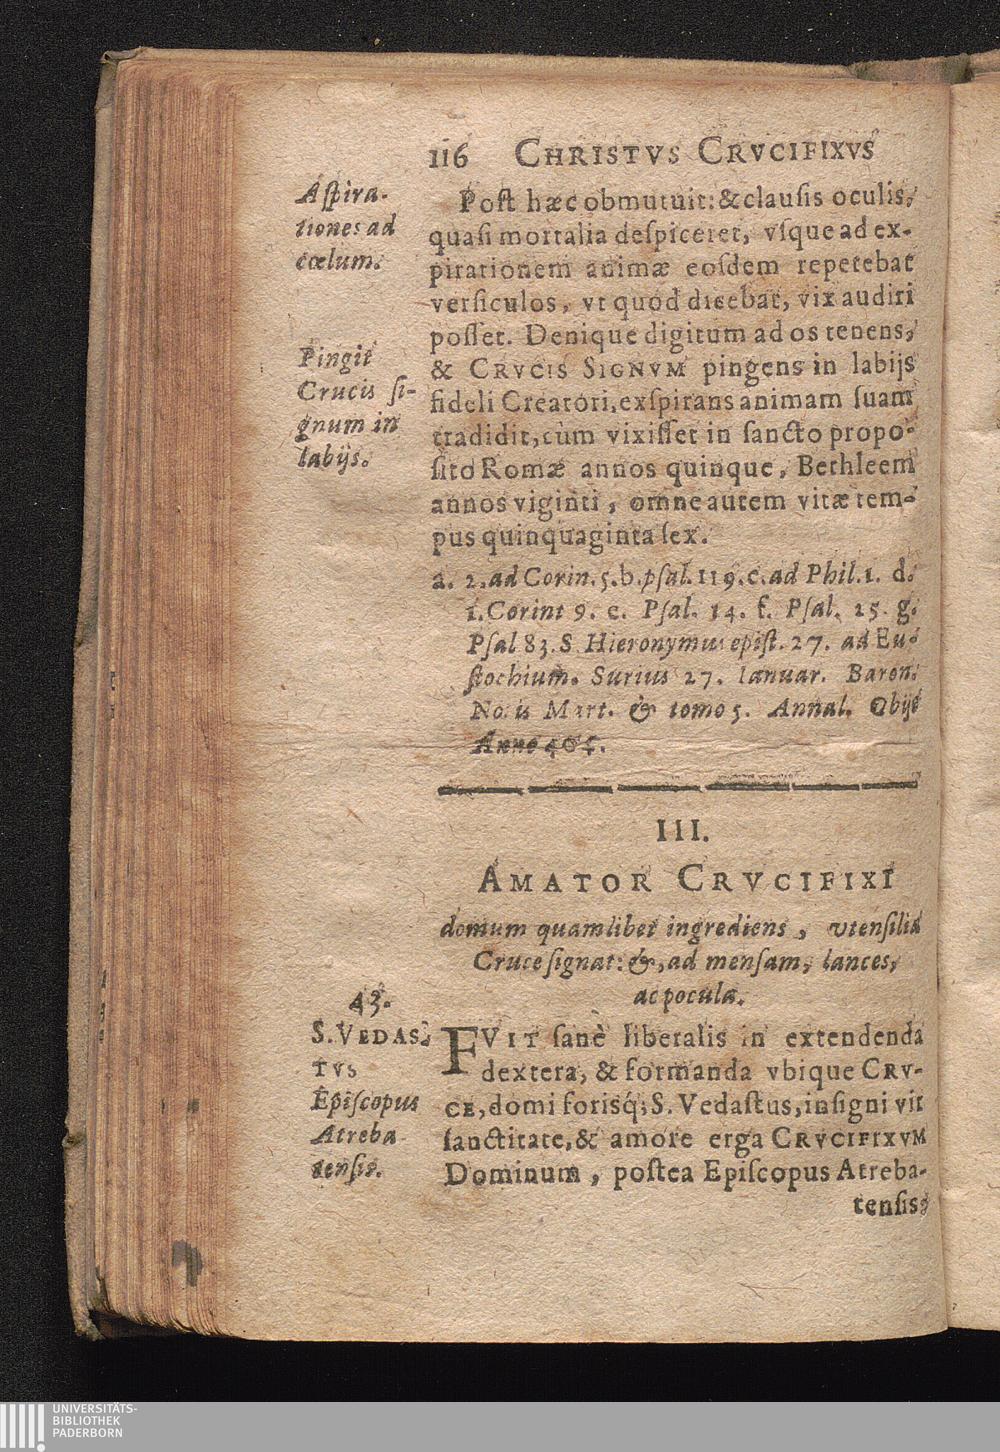 116 CHRISTVS CRVCIFIXVS
Aſpira-
tiones ad
cœlum.
Poſt hæc obmutuit: & clauſis oculis,
quaſi mortalia deſpiceret, vſque ad ex-
pirationem animæ eoſdem repetebat
verſiculos, vt quod dicebat, vix audiri
poſſet. Denique digitum ad os tenens,
Pingit
Crucis ſi-
gnum in
labijs.
& CRVCIS SIGNVM pingens in labijs
fideli Creatori, exſpirans animam ſuam
tradidit, cùm vixiſſet in ſancto propo-
ſito Romæ annos quinque, Bethleem
annos viginti, omne autem vitæ tem-
pus quinquaginta ſex.
a. 2. ad Corin. 5. b. pſal. 119. c. ad Phil. 1. d.
1. Corint 9. e. Pſal. 14. f. Pſal. 25. g.
Pſal 83. S. Hieronymus epiſt. 27. ad Eu-
ſtochium. Surius 27. Ianuar. Baron.
Notis Mart. & tomo 5. Annal. Obijt
Anno 404.
III.
AMATOR CRVCIFIXI
domum quamlibet ingrediens, vtenſilia
Cruce ſignat: &, ad menſam, lances,
ac pocula.
43.
S. VEDAS-
TVS
Epiſcopus
Atreba
tenſis.
FVIT ſanè liberalis in extendenda
dextera, & formanda vbique CRV-
CE, domi foriſq́; S. Vedaſtus, inſigni vir
ſanctitate, & amore erga CRVCIFIXVM
Dominum, poſtea Epiſcopus Atreba-
tenſis,
UNIVERSITÄTS-
BIBLIOTHEK
PADERBORN